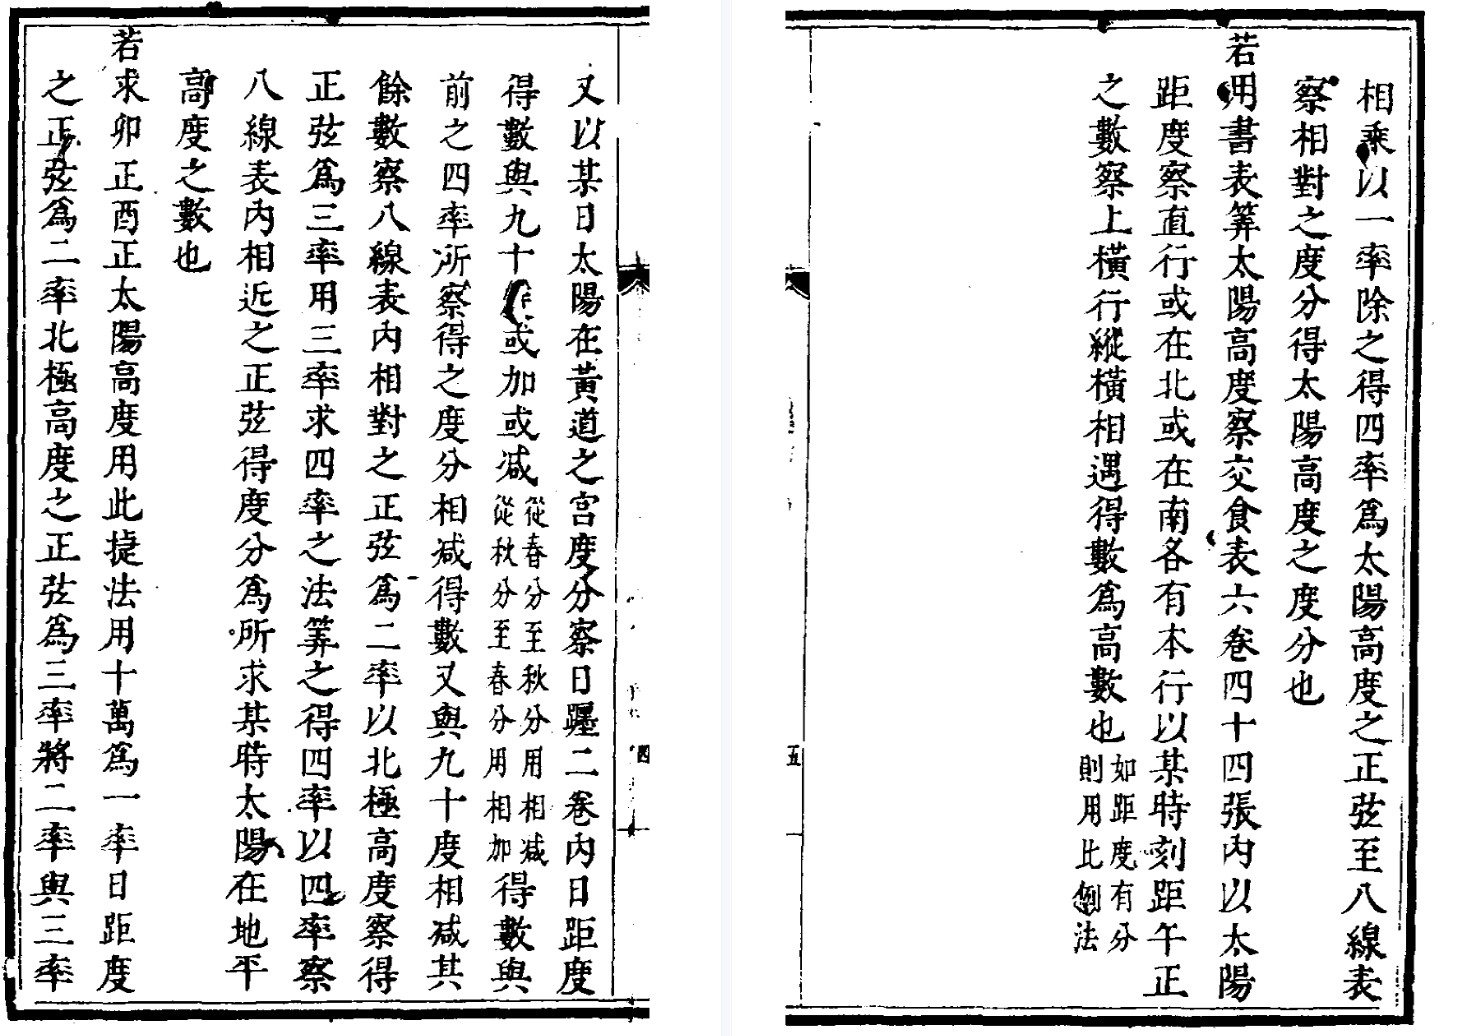 又以某日太陽在黃道之宮度分察日躔二卷內日距度
得數與九十或加或減從春分至秋分用相減從秋分至春分用相加得數與
前之四率所察得之度分相減得數又與九十度相減其
餘數察八線表內相對之正弦爲二率以北極高度察得
正弦爲三率用三率求四率之法筭之得四率以四率察
八線表內相近之正弦得度分爲所求某時太陽在地平
高度之數也
若求卯正酉正太陽高度用此捷法用十萬爲一率日距度
之正弦爲二率北極高度之正弦爲三率將二率與三率
四
相乘以一率除之得四率爲太陽高度之正弦至八線表
察相對之度分得太陽高度之度分也
若用書表筭太陽高度察交食表六卷四十四張內以太陽
距度察直行或在北或在南各有本行以某時刻距午正
之數察上橫行縱橫相遇得數爲高數也如距度有分則用比例法
五